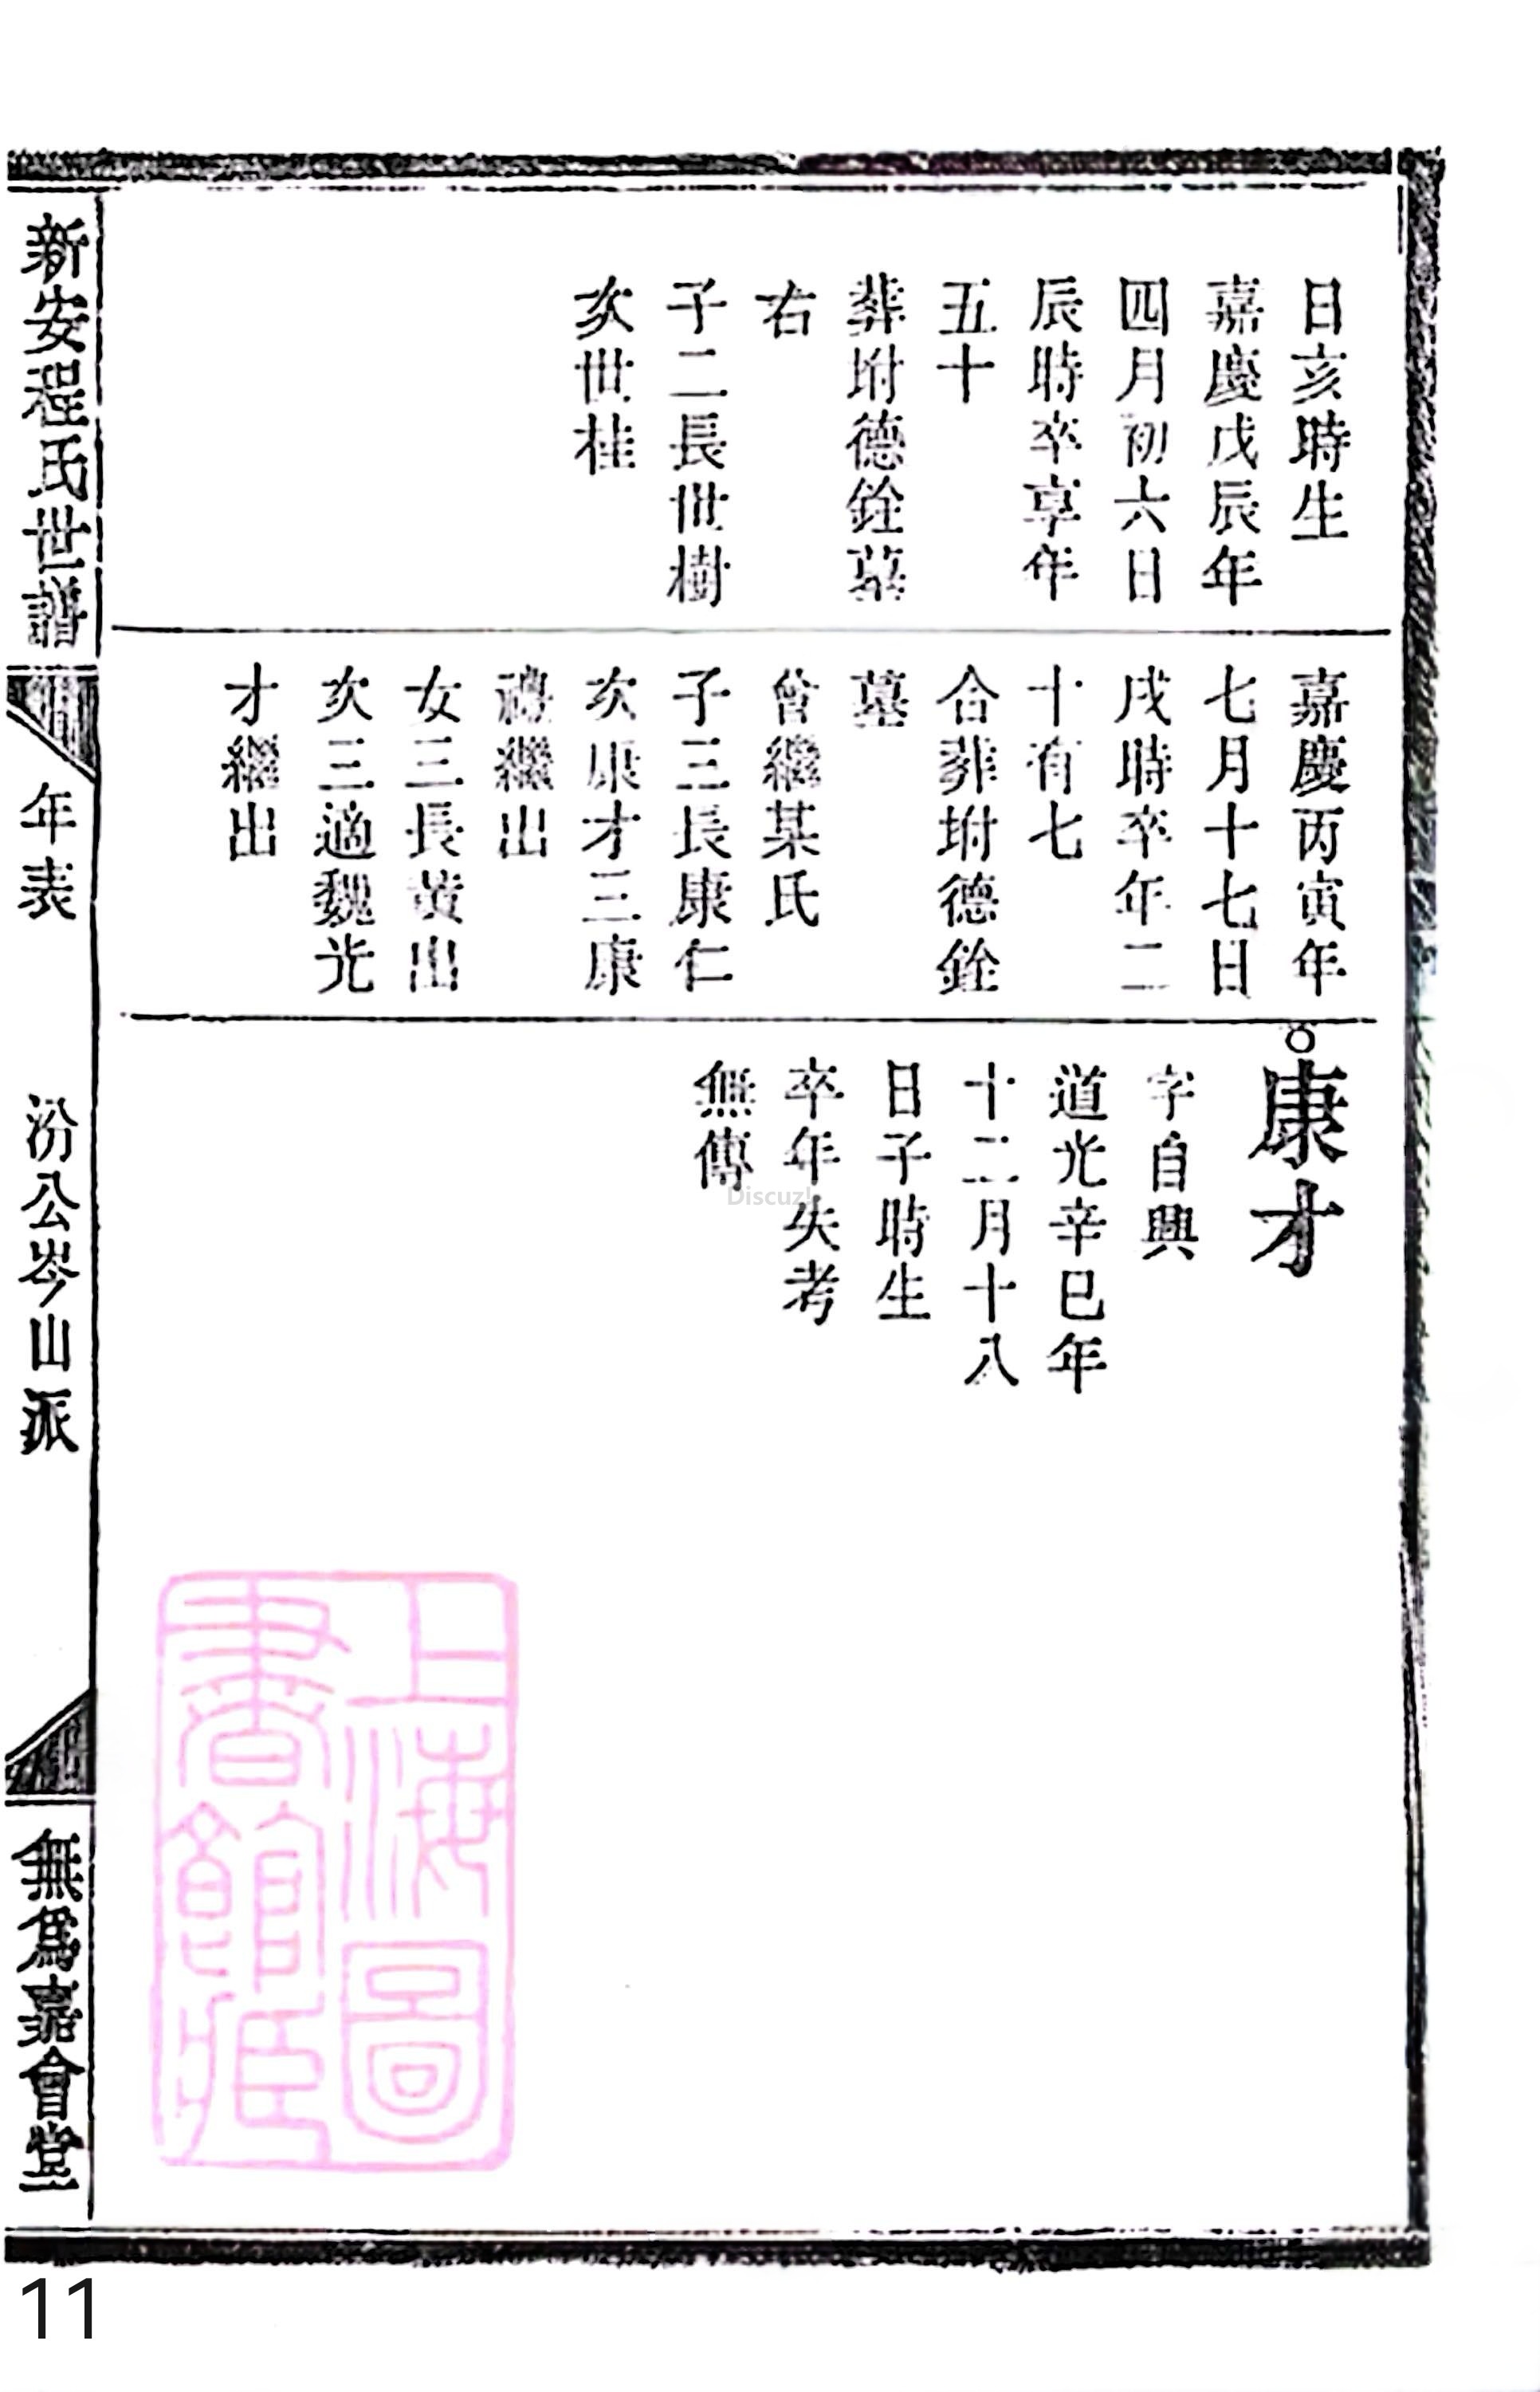 日亥時生
嘉慶戊辰年
四月初六日
辰時卒享年
五十
葬坿德銓墓
右
子二長世樹
次世桂
嘉慶丙寅年
七月十七日
戌時卒年二
十有七
合葬坿德銓
墓
曾繼某氏
子三長康仁
次康才三康
繼出
女三長黃出
次三適魏光
才繼出
康才
字自興
道光辛巳年
十二月十八
日子時生
卒年失考
無傳
Discuz!
新安程氏世譜
年表
汾公岑山派
無爲嘉會堂
上海圖
書館藏
11